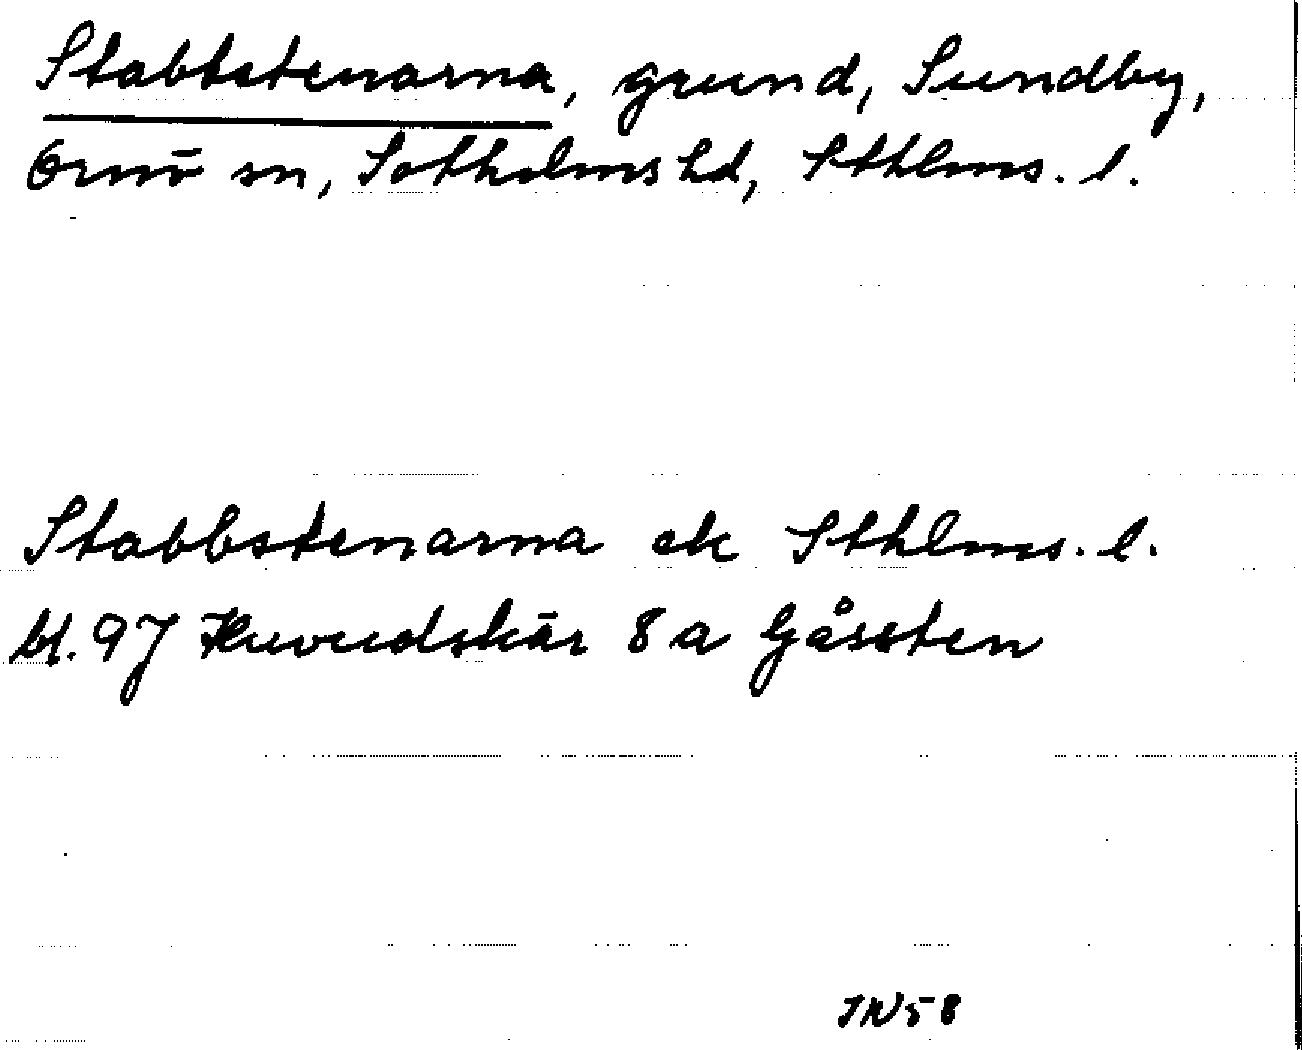 Stabbstenarna, grund, Sundby,
Ornö sn, Sotholms hd, Sthlms. l.
Stabbstenarna ek Sthlms. l.
bl. 97 Huvudskär 8 a Gåssten
JN58